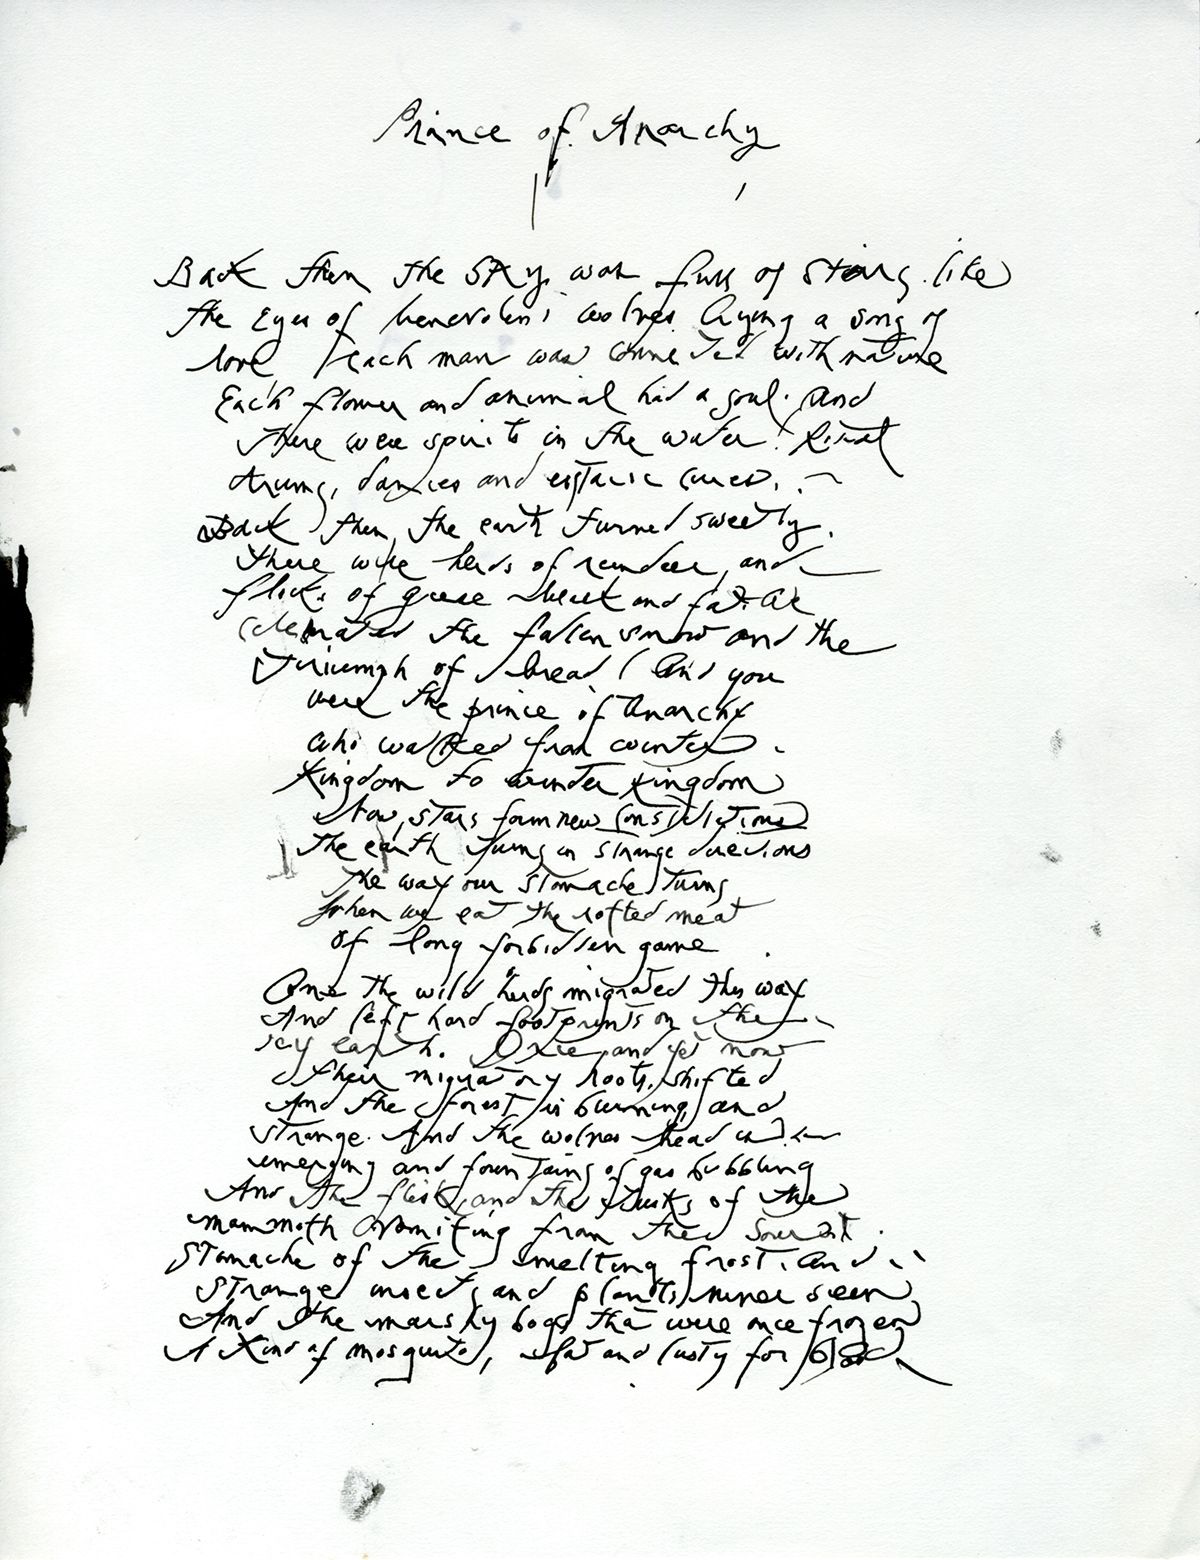 Prince of Anarchy
Back then the sky was full of stars like
the Eyes of benevolent wolves crying a song of
love Each man was connected with nature
Each flower and animal had a soul. And
there were spirits in the water! Ritual
drums, dances and estatic cures.
Back then the earth turned sweetly.
there were herds of reindeer, and
flocks of geese sleek and fat. We
celebrated the fallen snow and the
triumph of bread! And you
were the prince of Anarchy
who walked from country
Kingdom to winter Kingdom
Now, stars form new constelations
The earth turns in strange directions
The way our stomache turns
when we eat the rotted meat
of long forbidden game
Once the wild herds migrated this way
And left hard footprints on the
icy earth. and yet now
their migratory roots shifted
And the forest is burning, and
strange. And the wolves head
emerging and fountains of gas bubbling
And the flesh and the tusks of the
mammoth vomiting from the
stomache of the smelting frost. And
strange insects and plants never seen
And the marshy bogs that were once frozen
A Kind of mosquito, fat and lusty for blood